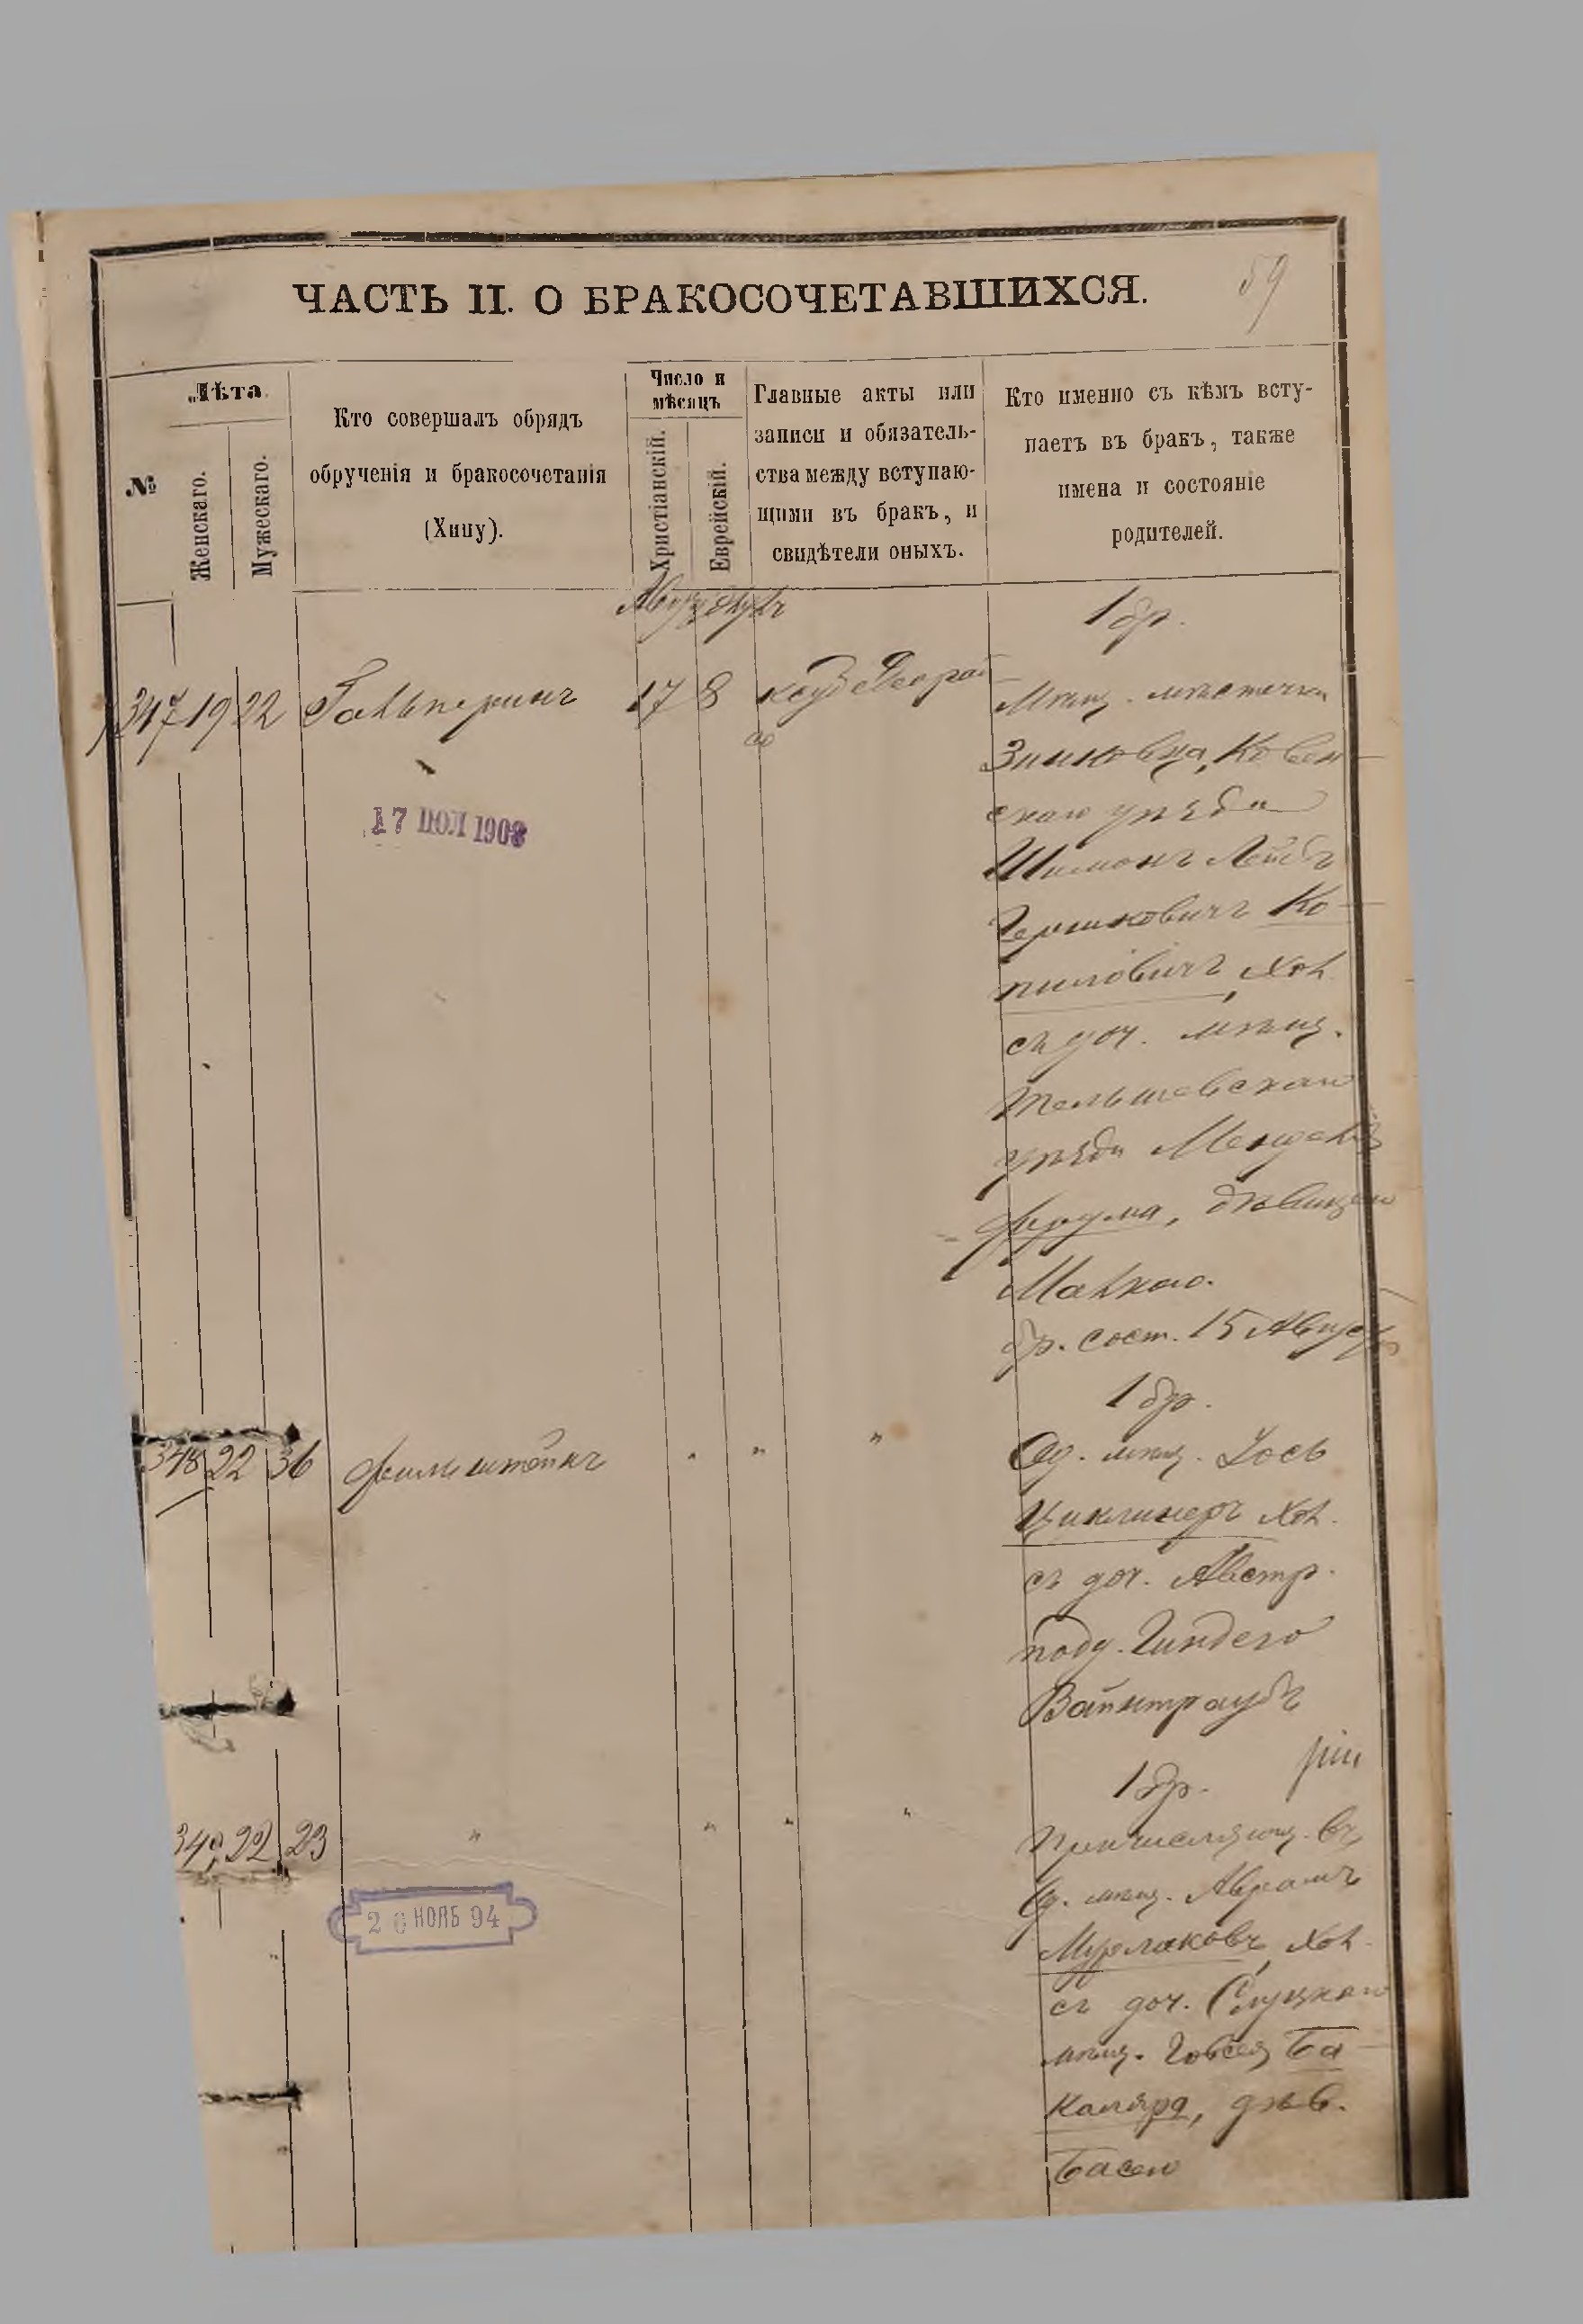 59
ЧАСТЬ II. О БРАКОСОЧЕТАВШИХСЯ.
№
Лѣта.
Женскаго.
Мужескаго.
Кто совершалъ обрядъ
обрученія и бракосочетанія
(Хипу).
Число и
мѣсяцъ
Христіанскій.
Еврейскій.
Главные акты или
записи и обязатель-
ства между вступаю-
щими въ бракъ, и
свидѣтели оныхъ.
Кто именно съ кѣмъ всту-
паетъ въ бракъ, также
имена и состояніе
родителей.
1 бр.
347 19 22 Гальперинъ 17 8
Мѣщ. мѣстечка
Ковен-
скаго уѣзда
Шимонъ Лейбъ
Гершковичъ Ко-
пиловичъ, хол.
съ доч. мѣщ.
Тельшевскаго
уѣзда Менделя
Фрума, дѣвицею
Малкою.
бр. сост. 15 Августа
17 ІЮЛ 1908
1 бр.
348 22 36 Фильштейнъ " " "
Од. мѣщ. Іось
Циклинеръ хол.
съ доч. Австр.
подд. Гиндею
Вайнтраубъ
1 бр.
349 22 23 " " " "
Причисляющ. въ
Од. мѣщ. Абрамъ
Мурлаковъ, хол.
съ доч. Слуцкаго
мѣщ. Говсея Ба-
каляра, дѣв.
Басею
20 НОЯБ 94